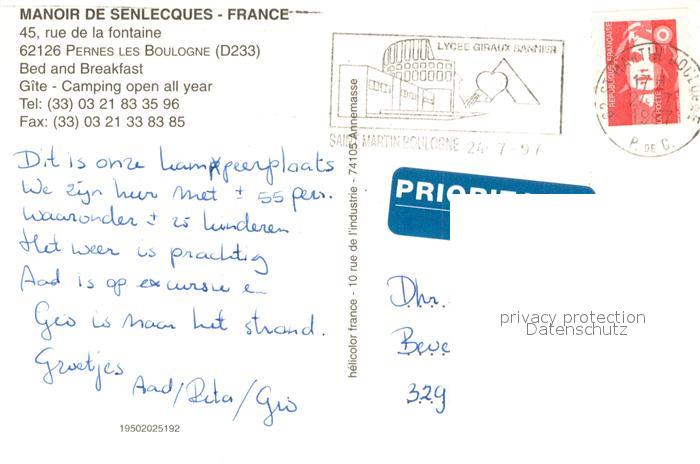 MANOIR DE SENLECQUES - FRANCE
45, rue de la fontaine
62126 PERNES LES BOULOGNE (D233)
Bed and Breakfast
Gîte - Camping open all year
Tel: (33) 03 21 83 35 96
Fax: (33) 03 21 33 83 85
Dit is onze kampeerplaats
We zijn hier met ± 55 pers.
waaronder ± 25 kinderen
Het weer is prachtig
Aad is op excursie en
Gio is naar het strand.
Groetjes
Aad/Rita/Gio
19502025192
hélicolor france - 10 rue de l'industrie - 74105 Annemasse
LYCEE GIRAUX SANNIER
SAINT MARTIN BOULOGNE 24-7-97
REPUBLIQUE FRANÇAISE
17
P. DE C.
Dhr.
Beve
329
privacy protection
Datenschutz